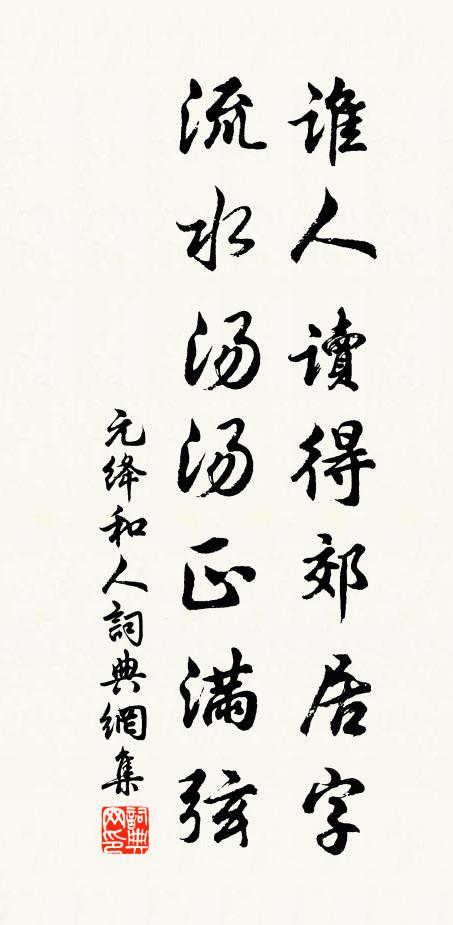 誰人讀得郊居字
流水汤汤正滿弦
元绛和人詞典網集
詞典网印